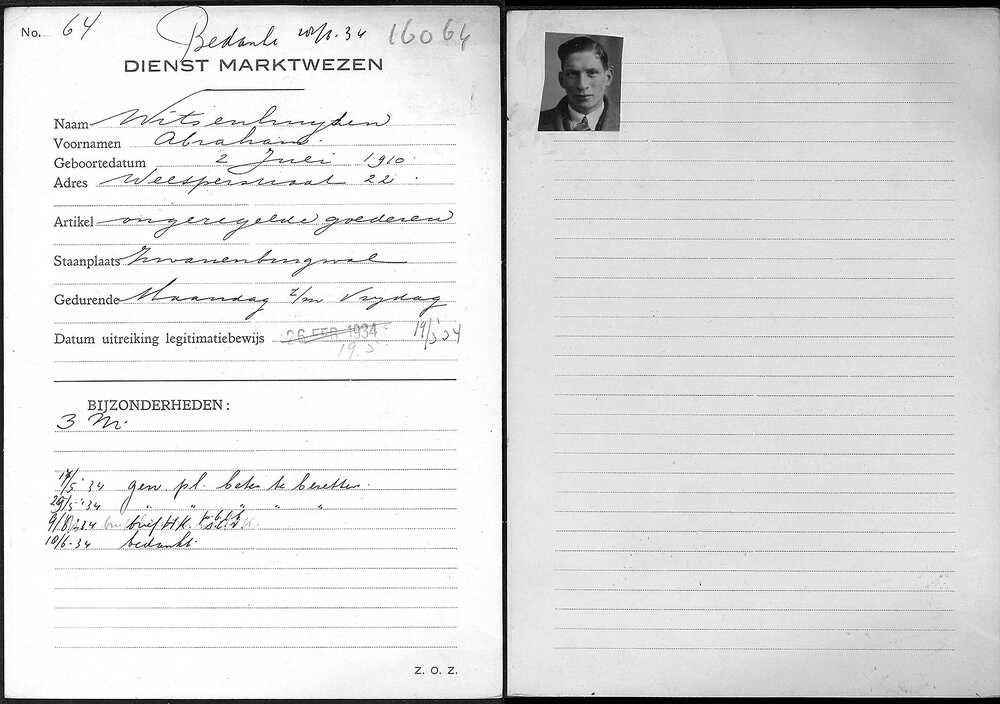 No. 64 Bedankt 34 16064
DIENST MARKTWEZEN
Naam Witsenhuysen
Voornamen Abraham.
Geboortedatum 2 Juli 1910.
Adres Weesperstraat 22.
Artikel ongeregelde goederen
Staanplaats Zwanenburgwal
Gedurende Maandag t/m Vrijdag
Datum uitreiking legitimatiebewijs 26 FEB 1934 19/5 34
19.5
BIJZONDERHEDEN:
3 M.
17/5 '34 gen. pl. beter te bezetten.
29/5-'34 " " " " "
9/6 34 brief H.K.
10/6-34 bedankt.
Z. O. Z.